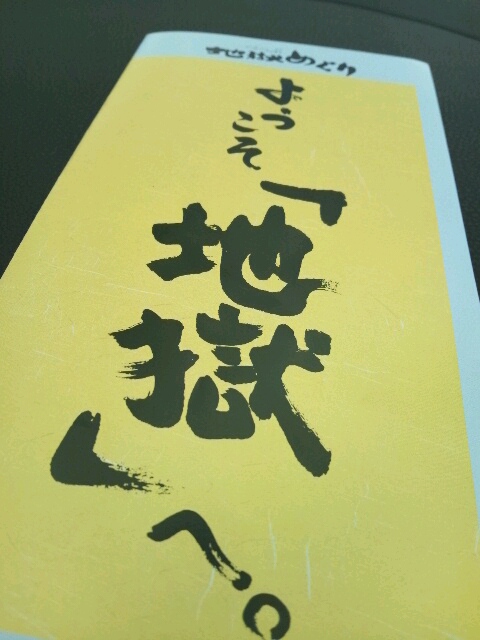 地獄めぐり
ようこそ
「地獄」
へ。